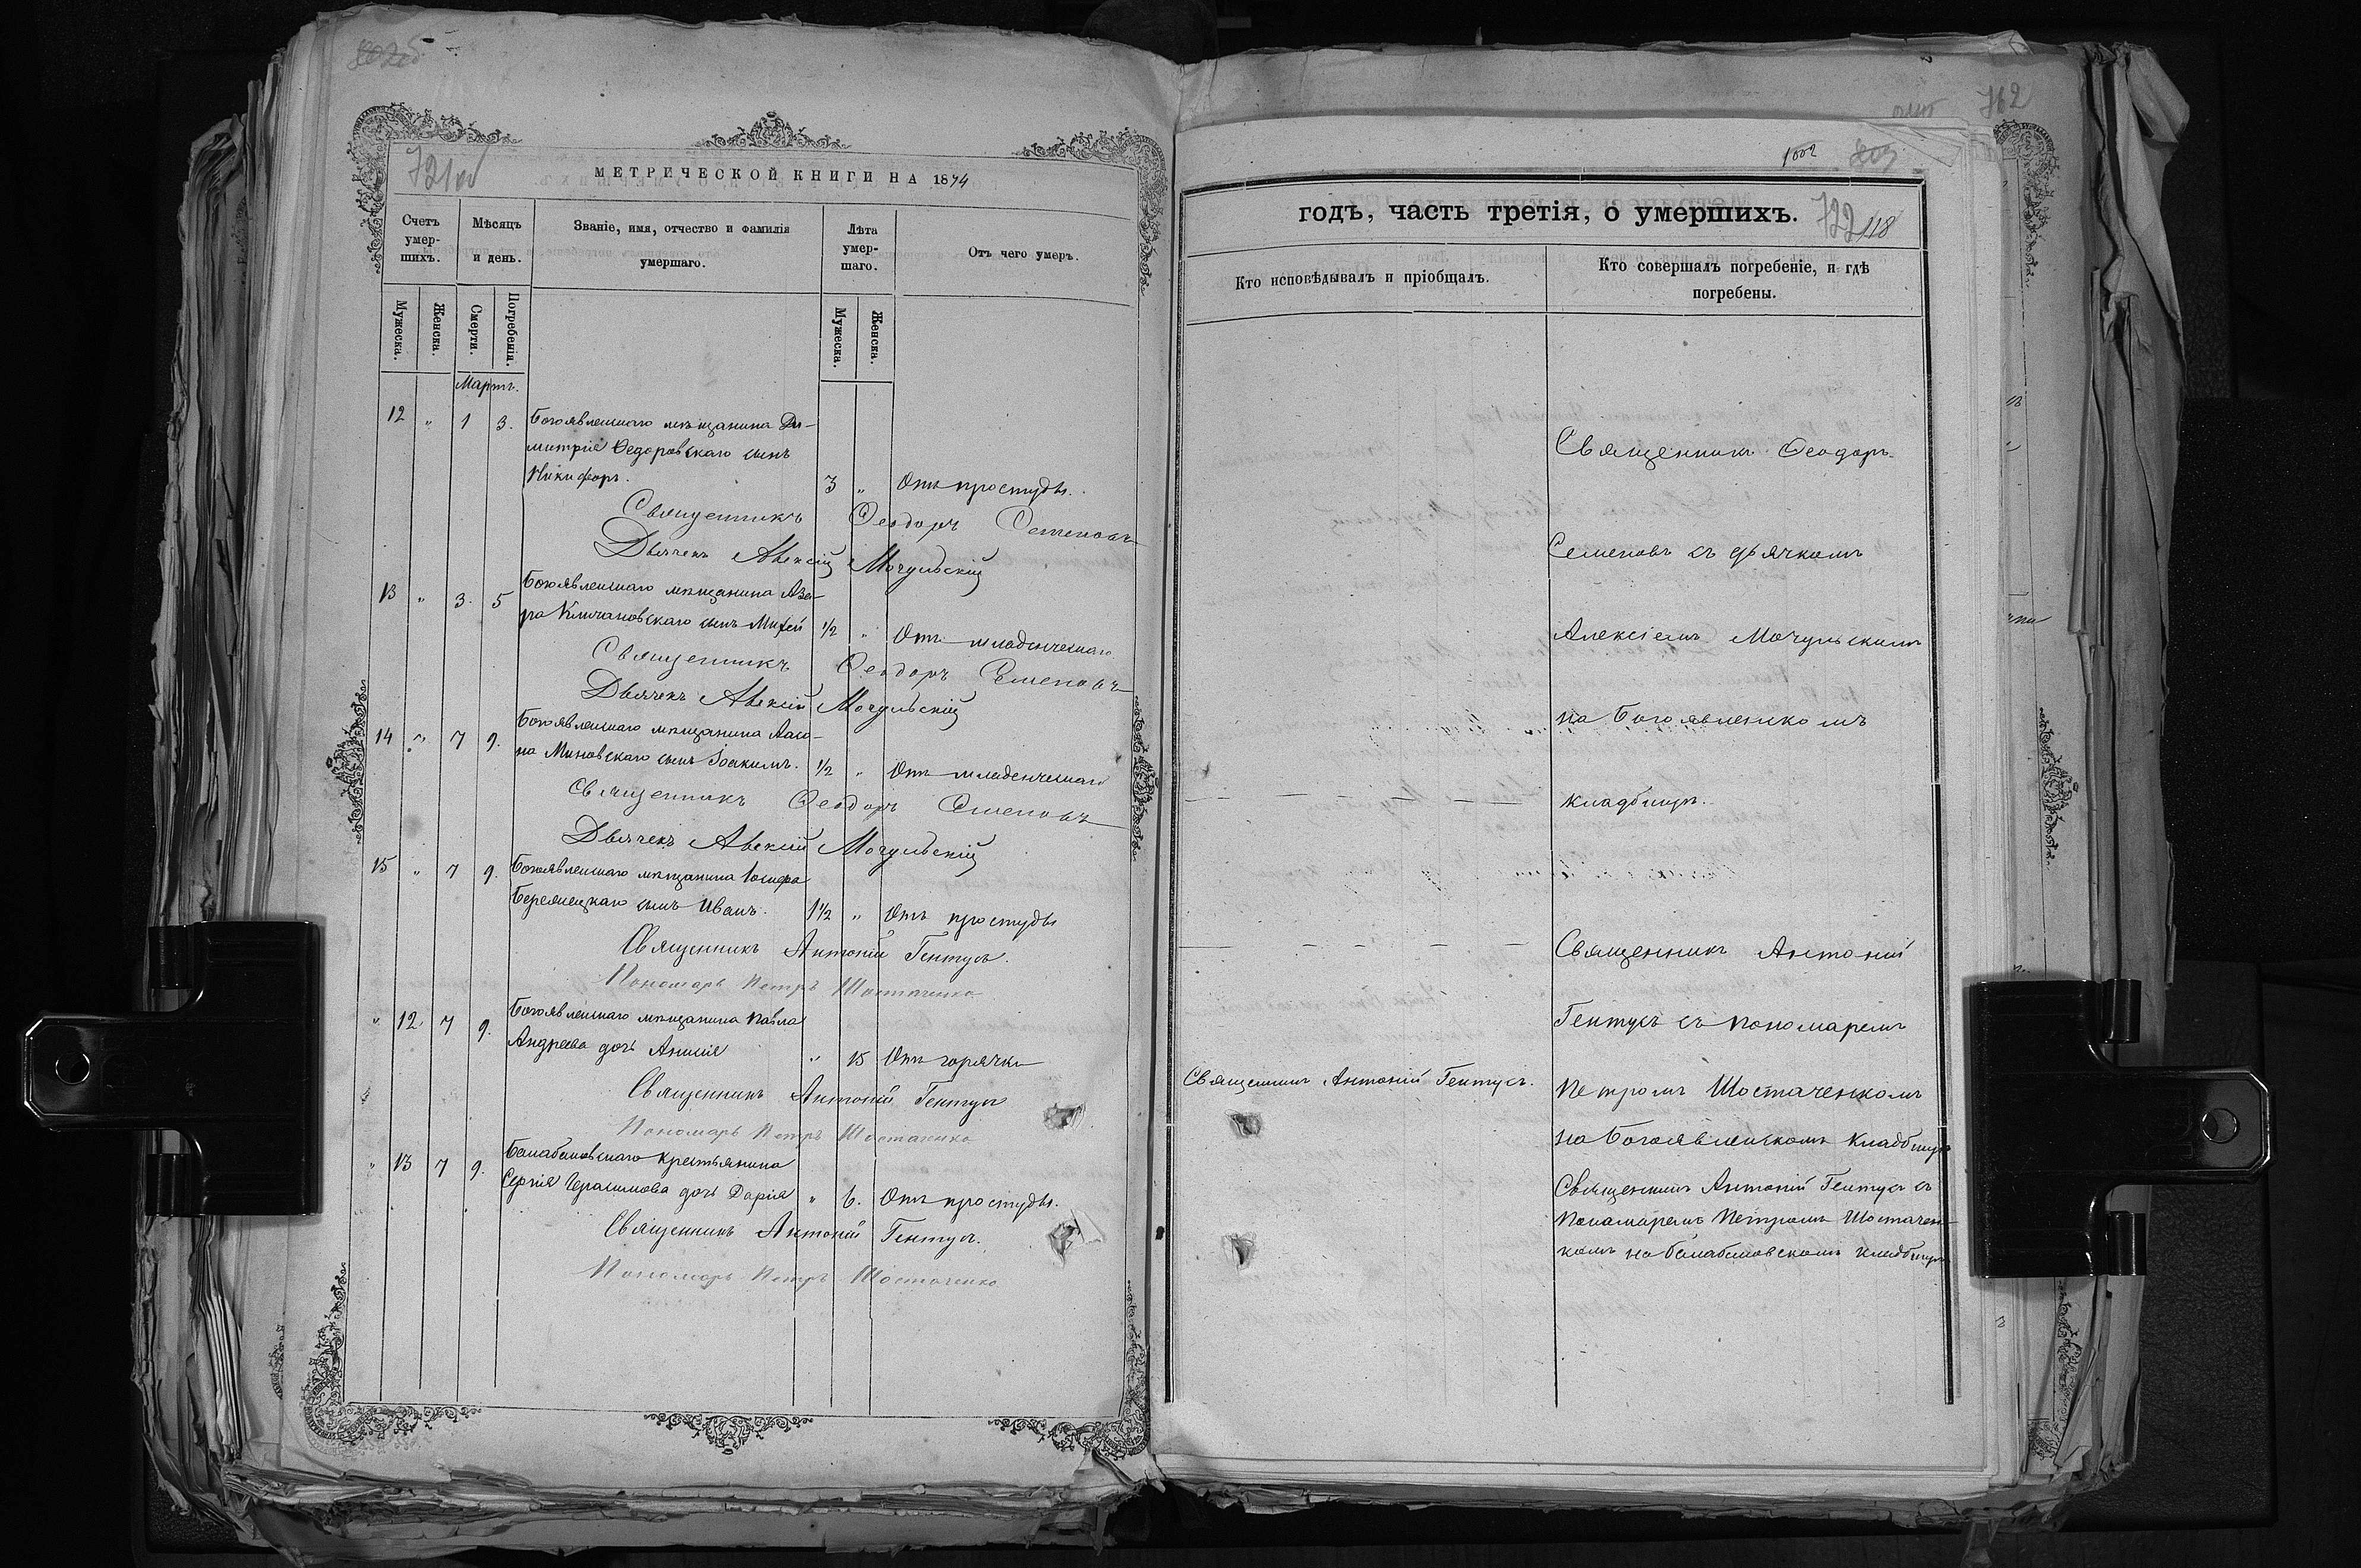 721 об
МЕТРИЧЕСКОЙ КНИГИ НА 1874
Счетъ умер-шихъ.
Мѣсяцъ и день.
Званіе, имя, отчество и фамилія умершаго.
Лѣта умер-шаго.
Отъ чего умеръ.
Мужеска.
Женска.
Смерти.
Погребенія.
Мужеска.
Женска.
Мартъ.
12 " 1 3. Богоявленскаго мѣщанина Ди-
митрія Ѳедоровскаго сынъ
Никифоръ. 3 " Отъ простуды.
Священникъ Ѳеодоръ Семеновъ
Дьячекъ Алексій Мочульскій
13 " 3. 5 Богоявленскаго мѣщанина
сынъ 1/2 " Отъ младенческаго
Священникъ Ѳеодоръ Семеновъ
Дьячекъ Алексій Мочульскій
14 " 7 9. Богоявленскаго мѣщанина
на Миновскаго сынъ Іоакимъ. 1/2 " Отъ младенческаго
Священникъ Ѳеодоръ Семеновъ
Дьячекъ Алексій Мочульскій
15 " 7 9. Богоявленскаго мѣщанина Іосифа
сынъ Иванъ. 1 1/2 " Отъ простуды
Священникъ Антоній Гентусъ.
Пономарь Петръ Шостаченко
" 12. 7 9. Богоявленскаго мѣщанина Павла
Андреева дочь Анисія " 15 Отъ горячки
Священникъ Антоній Гентусъ
Пономарь Петръ Шостаченко
" 13 7 9. Балабановскаго крестьянина
Сергія Герасимова дочь Дарія " 6. Отъ простуды.
Священникъ Антоній Гентусъ.
Пономарь Петръ Шостаченко
762
1002
803
годъ, часть третія, о умершихъ. 722 118
Кто исповѣдывалъ и пріобщалъ.
Кто совершалъ погребеніе, и гдѣ
погребены.
Священникъ Ѳеодоръ
Семеновъ съ дьячкомъ
Алексіемъ Мочульскимъ
на Богоявленскомъ
кладбищѣ.
Священникъ Антоній
Гентусъ съ пономаремъ
Священникъ Антоній Гентусъ.
Петромъ Шостаченкомъ
на Богоявленскомъ кладбищѣ
Священникъ Антоній Гентусъ съ
Пономаремъ Петромъ Шостачен-
комъ на Балабановскомъ кладбищѣ